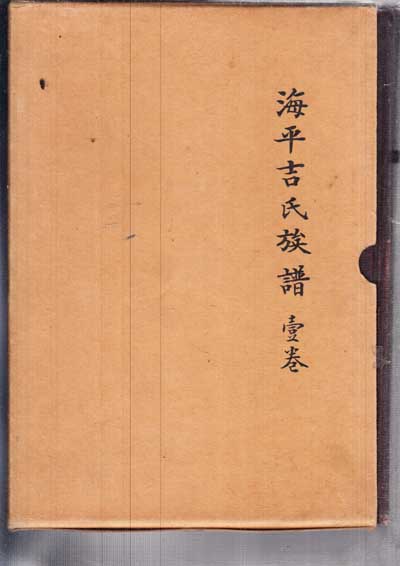 海平吉氏族譜 壹卷